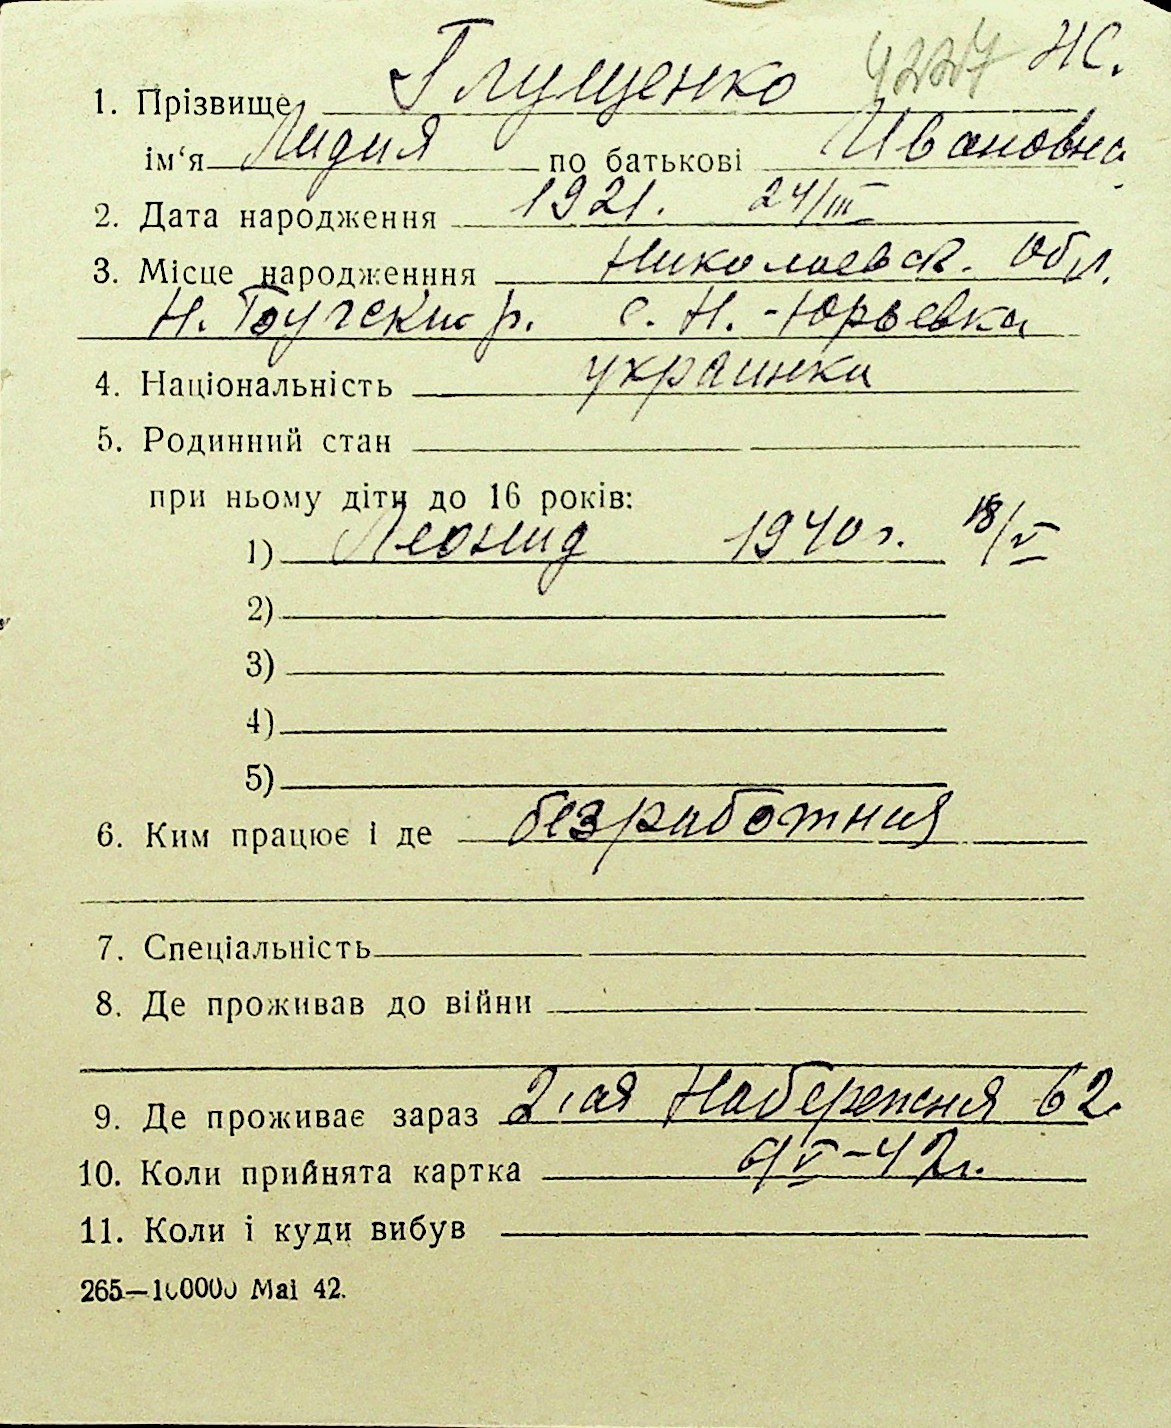 4227 НС.
1. Прізвище Глущенко
ім‘я Лидия по батькові Ивановна
2. Дата народження 1921. 24/III
3. Місце народженння Николаевск. Обл.
Н. Бугский р. с. Н.-Юрьевка
4. Національність украинка
5. Родинний стан
при ньому діти до 16 років:
1) Леонид 1940 г. 18/V
2)
3)
4)
5)
6. Ким працює і де безработная
7. Спеціальність
8. Де проживав до війни
9. Де проживає зараз 2-ая Набережная 62
10. Коли прийнята картка V-42г.
11. Коли і куди вибув
265—100000 Mai 42.